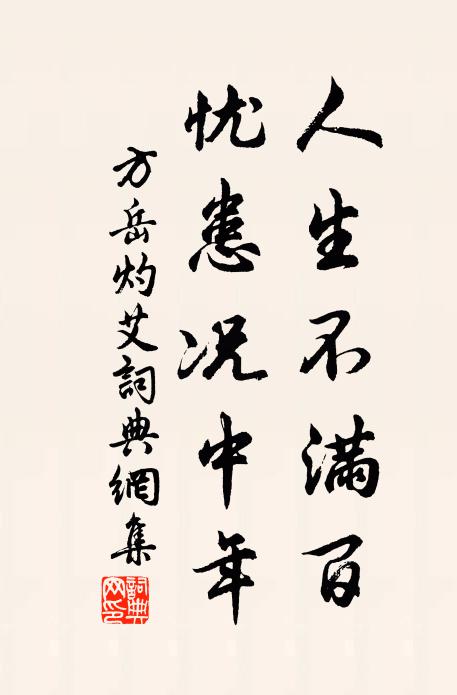 人生不满百
忧患况中年
方岳灼艾詞典網集
詞典网印